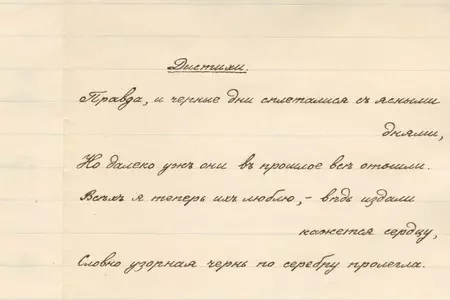 Дистихи.
Правда, и черные дни сплетались съ ясными
днями,
Но далеко ужъ они въ прошлое всѣ отошли.
Всѣхъ я теперь ихъ люблю, – вѣдь издали
кажется сердцу,
Словно узорная чернь по серебру пролегла.